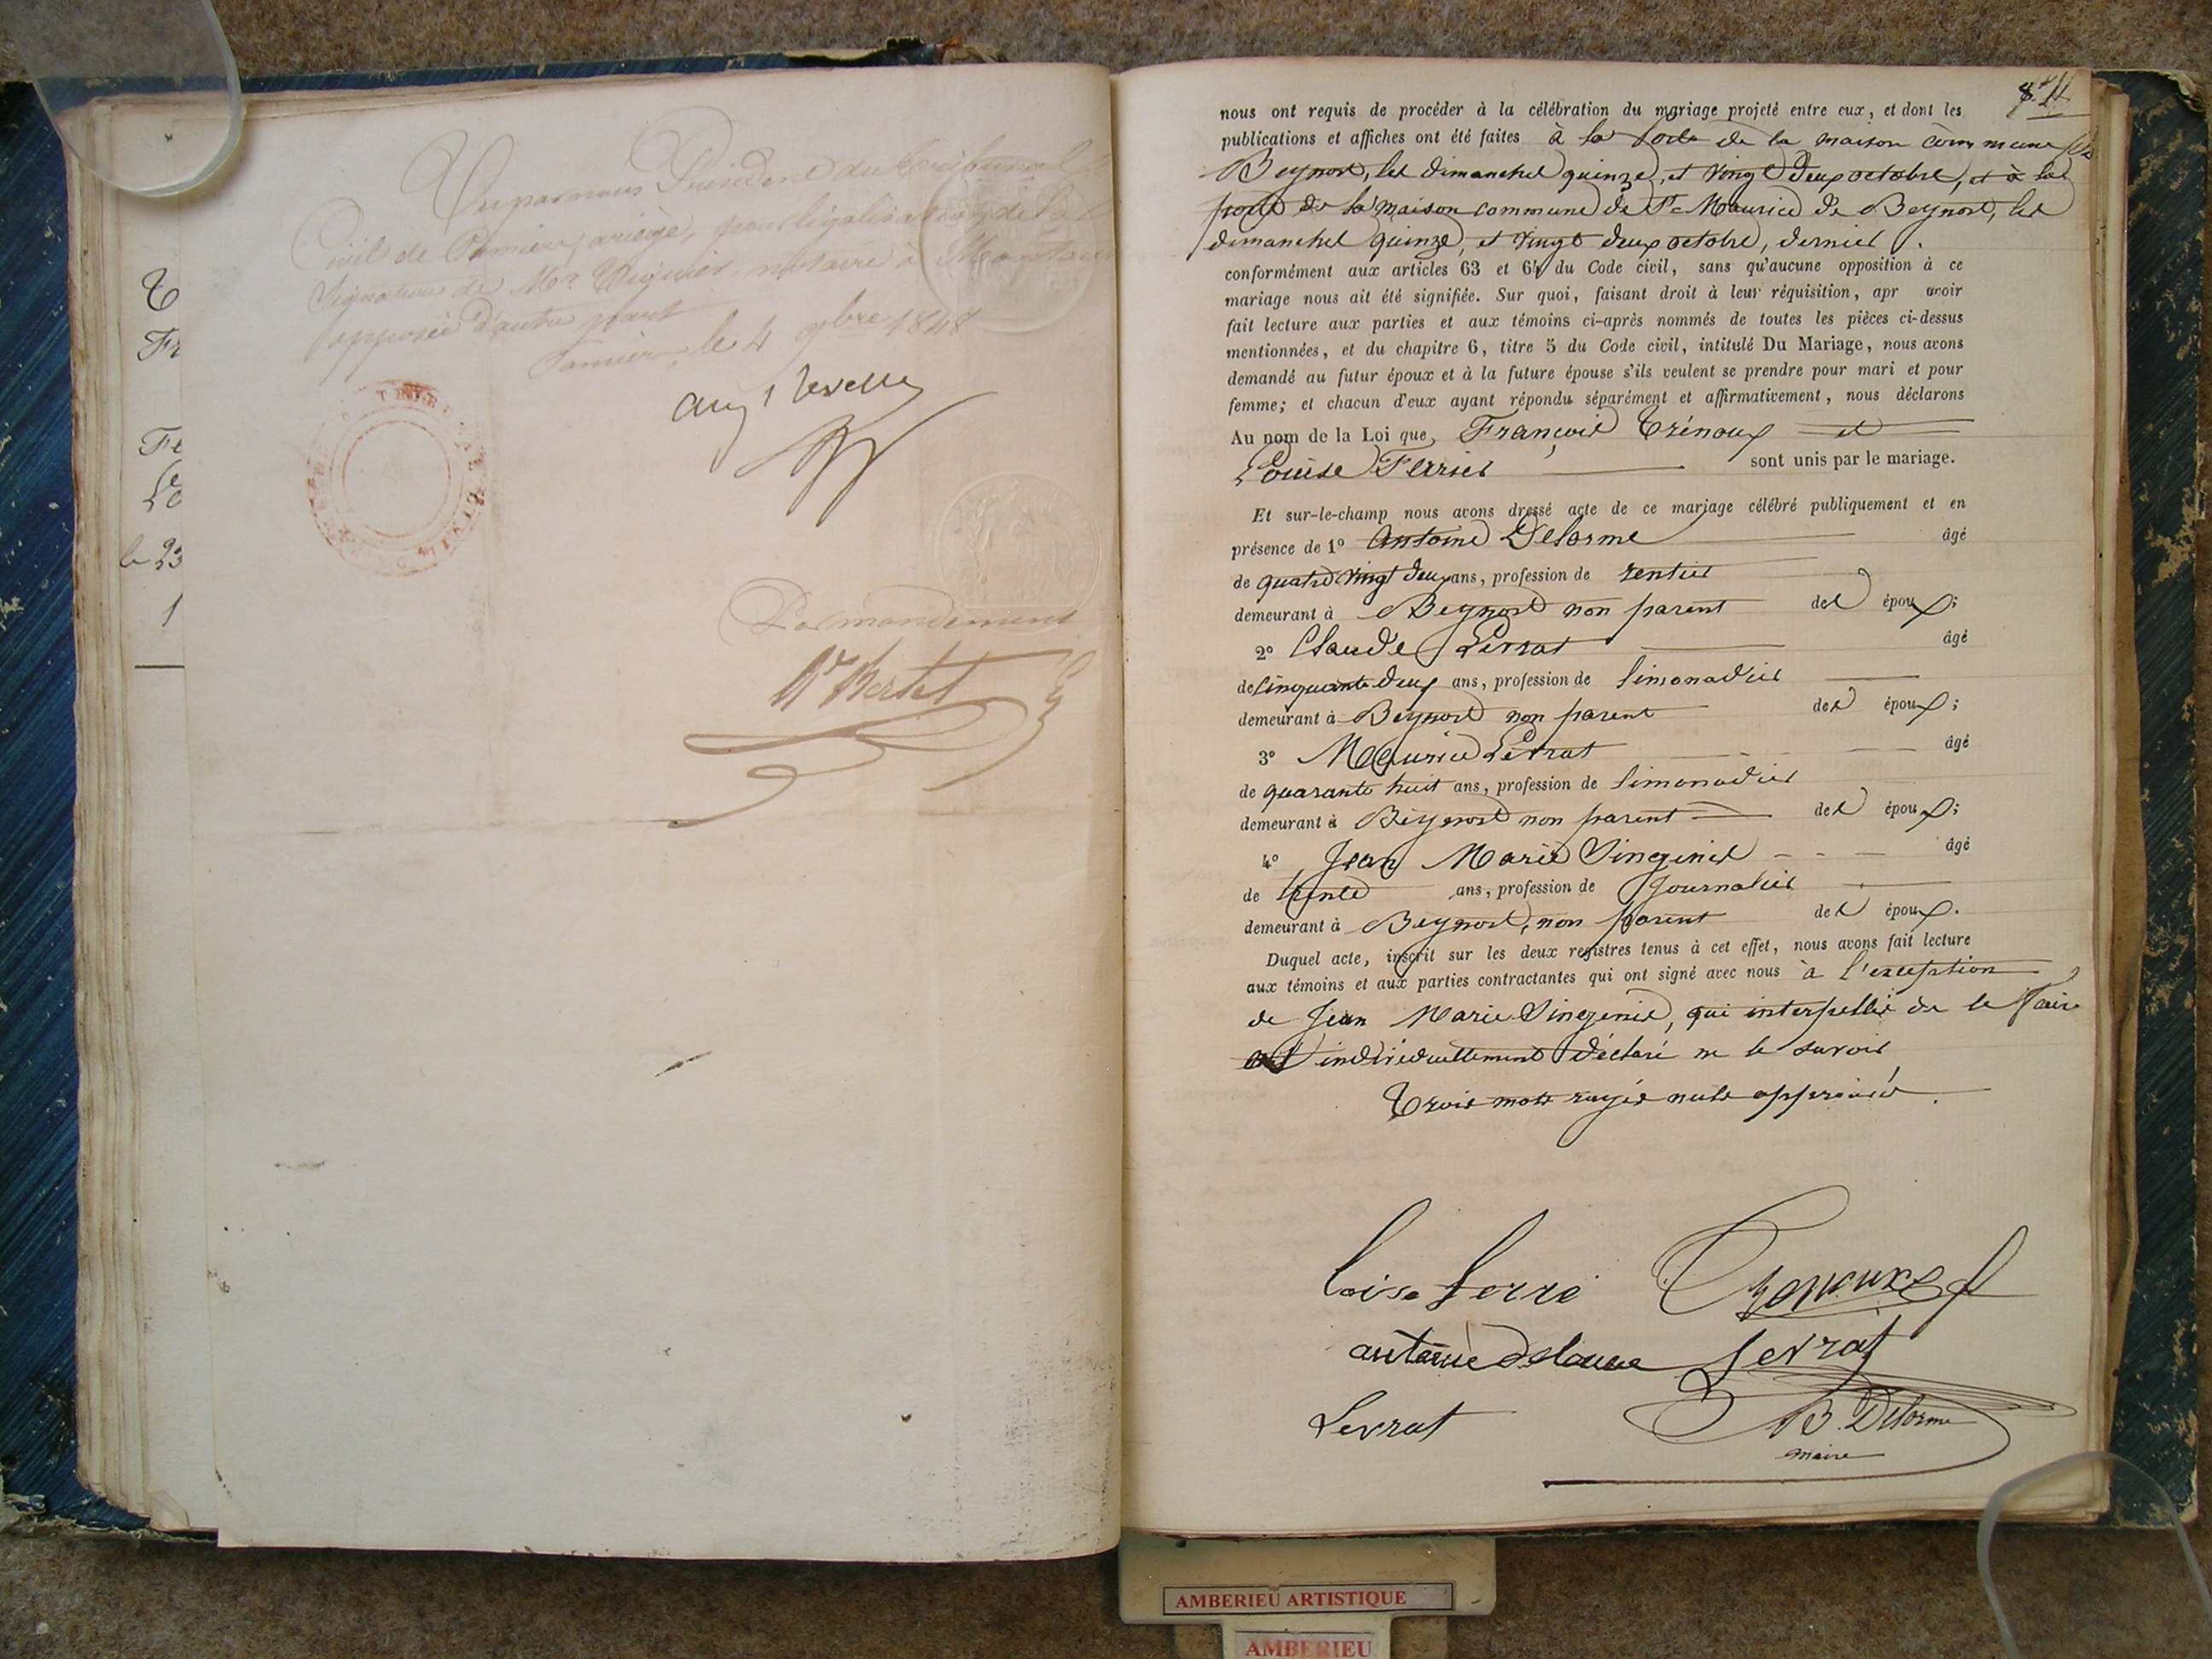 Vu par nous Président du tribunal
Civil de Pamiers, ariège, pour légalisation de la
Signature de Mr. Viguier notaire à
apposée d'autre part
Pamiers, le 4 9bre 1848
Par mandement
Bertet
T
Fr
Fe
Lo
le 23
1
8. 11
nous ont requis de procéder à la célébration du mariage projeté entre eux, et dont les
publications et affiches ont été faites à la porte de la maison commune de
Beynost, les dimanches quinze, et vingt deux octobre, et à la
porte de la maison commune de St Maurice de Beynost, les
dimanches quinze, et vingt deux octobre, dernier.
conformément aux articles 63 et 64 du Code civil, sans qu'aucune opposition à ce
mariage nous ait été signifiée. Sur quoi, faisant droit à leur réquisition, apr avoir
fait lecture aux parties et aux témoins ci-après nommés de toutes les pièces ci-dessus
mentionnées, et du chapitre 6, titre 5 du Code civil, intitulé Du Mariage, nous avons
demandé au futur époux et à la future épouse s'ils veulent se prendre pour mari et pour
femme; et chacun d'eux ayant répondu séparément et affirmativement, nous déclarons
Au nom de la Loi que, François Trénoux et
Louise Ferrier sont unis par le mariage.
Et sur-le-champ nous avons dressé acte de ce mariage célébré publiquement et en
présence de 1º Antoine Delorme âgé
de quatre vingt deux ans, profession de rentier
demeurant à Beynost non parent des époux;
2º Claude Levrat âgé
de cinquante deux ans, profession de limonadier
demeurant à Beynost non parent des époux;
3º Maurice Levrat âgé
de quarante huit ans, profession de limonadier
demeurant à Beynost non parent des époux;
4º Jean Marie Singenie âgé
de trente ans, profession de Journalier
demeurant à Beynost, non parent des époux.
Duquel acte, inscrit sur les deux registres tenus à cet effet, nous avons fait lecture
aux témoins et aux parties contractantes qui ont signé avec nous à l'exception
de Jean Marie Singenie, qui interpellé de le faire
a individuellement déclaré ne le savoir
Trois mots rayés nuls approuvés.
Loise Ferré Trenoux
antoine delorme Levrat
Levrat B. Delorme
maire
AMBERIEU ARTISTIQUE
AMBERIEU